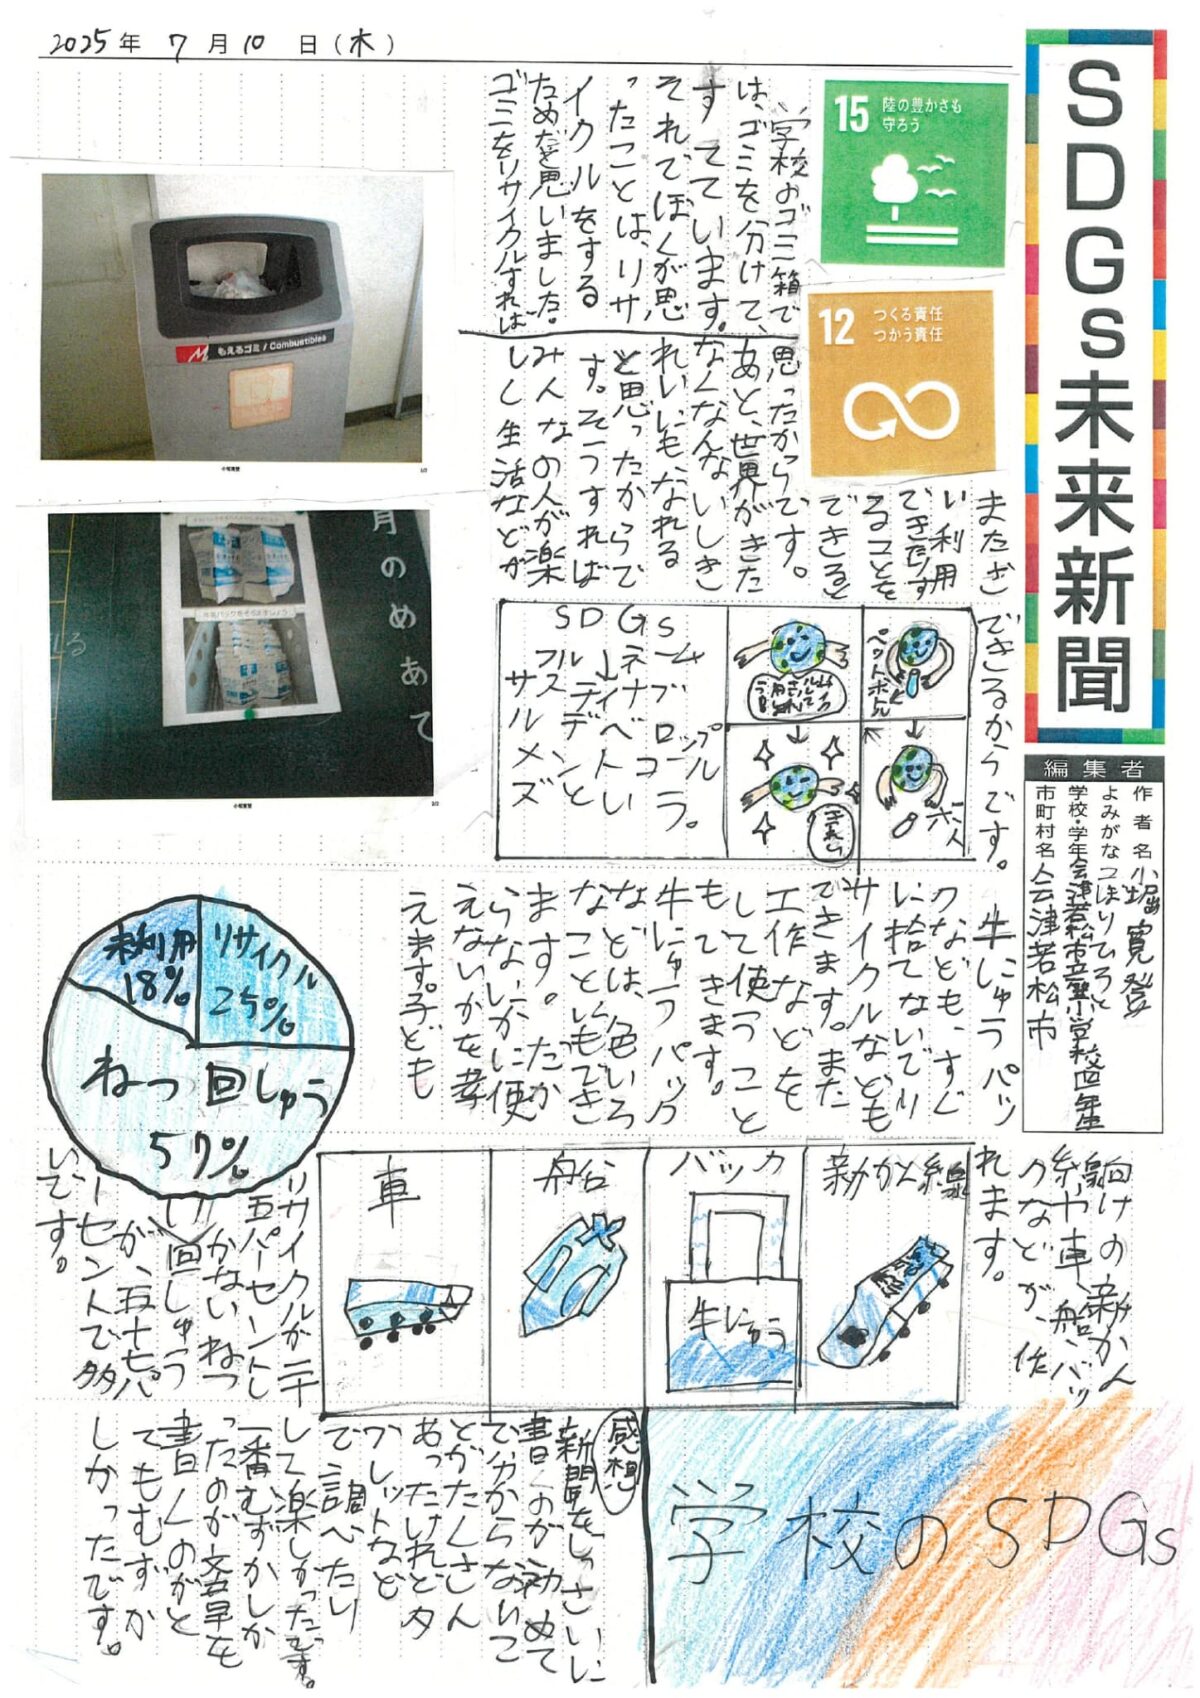 2025年 7月10日(木)
SDGs未来新聞
編集者
作者名 小堀寛登
よみがな こぼりひろと
学校・学年 会津若松市立 小学校四年生
市町村名 会津若松市
15 陸の豊かさも
守ろう
12 つくる責任
つかう責任
学校のゴミ箱で
は、ゴミを分けて、
すてています。
それでぼくが思
ったことは、リサ
イクルをする
ためだと思いました。
ゴミをリサイクルすれば
またさい
利用
できたりす
ることを
できると
思ったからです。
あと、世界がきた
なくなんないしき
れいにもなれる
と思ったからで
す。そうすれば
みんなの人が楽
しく生活などが
できるからです。
もえるゴミ / Combustibles
月のめあて
SDGs
ペットボトル
ポイ
きれい
牛にゅうパッ
クなども、すぐ
に捨てないでリ
サイクルなども
できます。また
工作などを
して使うこと
もできます。
牛にゅうパック
などは、色いろ
なことにもできま
す。だか
らなにかに使
えないかを考
えます。子ども
向けの新かん
線や車、船、バッ
クなどが、作
れます。
新かん線
バック
牛にゅう
船
車
リサイクル
25%
未利用
18%
ねつ回しゅう
57%
リサイクルが二十
五パーセントし
かないねつ
回しゅう
が、五十七パ
ーセントで多
いです。
学校のSDGs
感想
新聞をじっさいに
書くのが初めて
で、わからないこ
とがたくさん
あったけれどタ
ブレットなど
で調べたり
して楽しかったです。
一番むずかしか
ったのが文章を
書くのがと
てもむずか
しかったです。